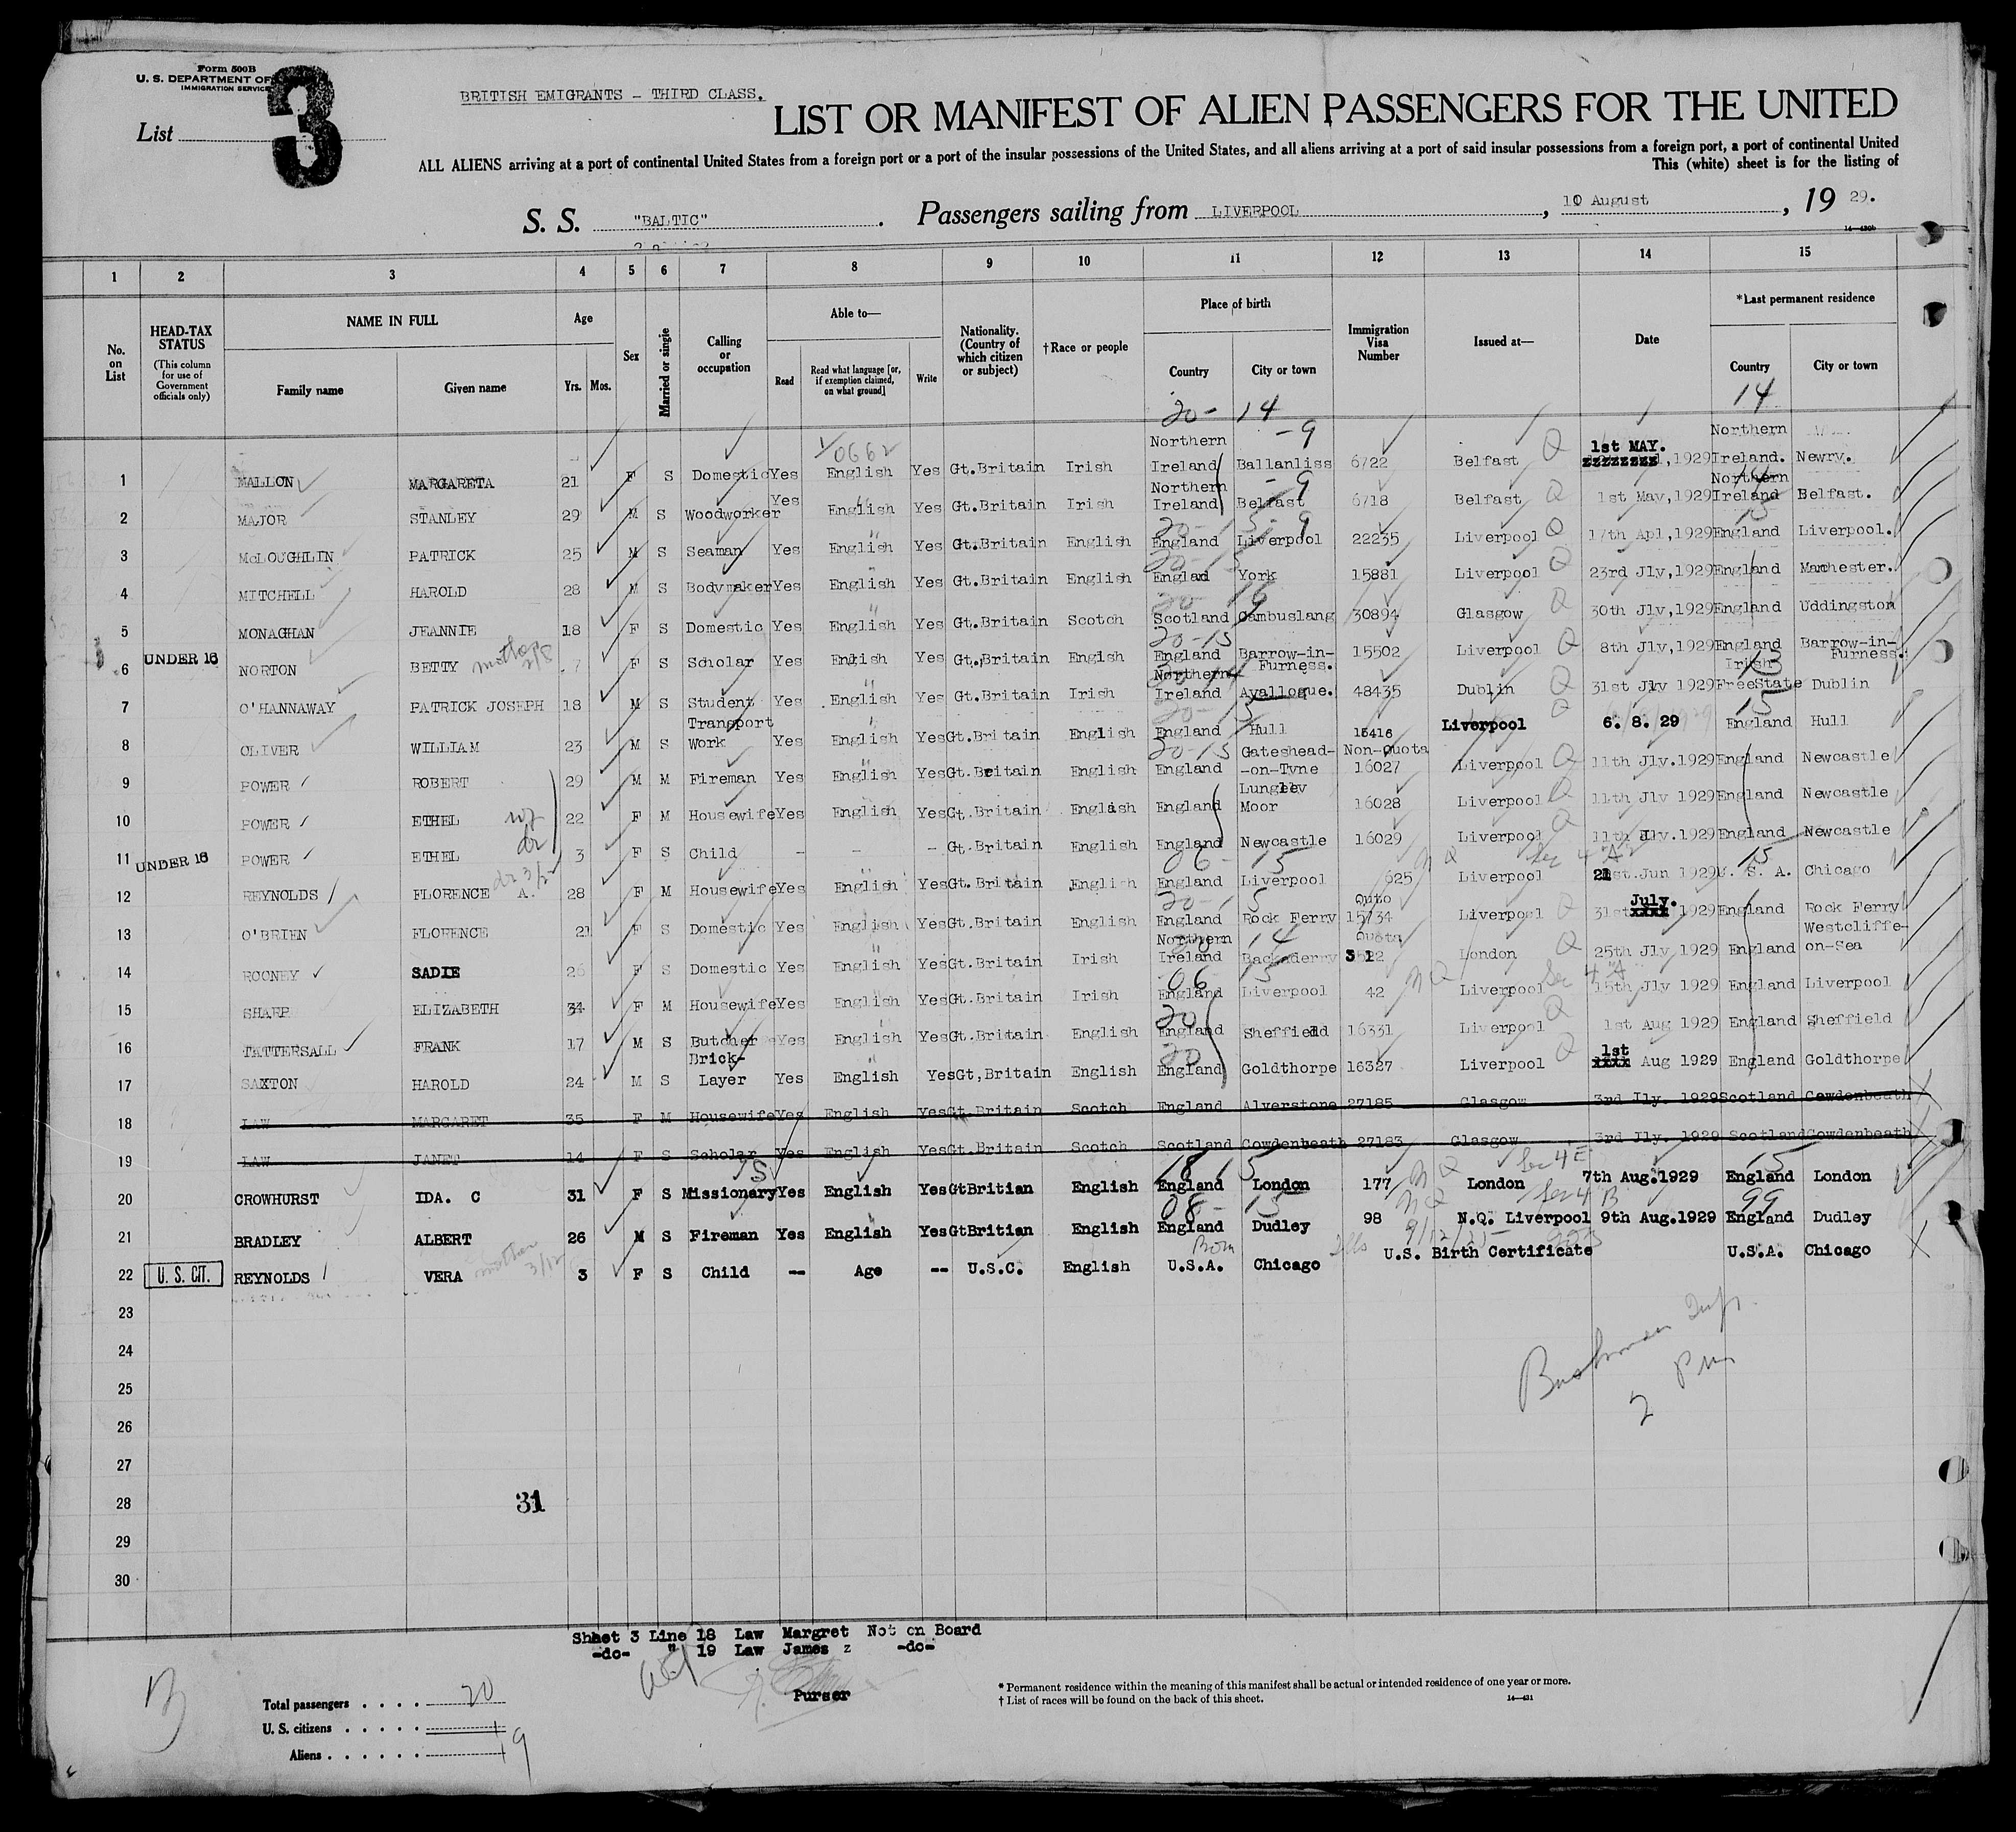 Form 500B
U. S. DEPARTMENT OF
IMMIGRATION SERVICE
List 3
BRITISH EMIGRANTS - THIRD CLASS.
LIST OR MANIFEST OF ALIEN PASSENGERS FOR THE UNITED
ALL ALIENS arriving at a port of continental United States from a foreign port or a port of the insular possessions of the United States, and all aliens arriving at a port of said insular possessions from a foreign port, a port of continental United
This (white) sheet is for the listing of
S. S. "BALTIC". Passengers sailing from LIVERPOOL, 10 August, 19 29.
1 2 3 4 5 6 7 8 9 10 11 12 13 14 15
No. on List
HEAD-TAX STATUS
(This column for use of Government officials only)
NAME IN FULL
Family name Given name
Age
Yrs. Mos.
Sex
Married or single
Calling or occupation
Able to—
Read
Read what language [or, if exemption claimed, on what ground]
Write
Nationality. (Country of which citizen or subject)
†Race or people
Place of birth
Country City or town
Immigration Visa Number
Issued at—
Date
*Last permanent residence
Country City or town
20- 14 14
1 MALLON MARGARETA 21 F S Domestic Yes English Yes Gt.Britain Irish Northern Ireland Ballanliss 6722 Belfast 1st MAY. ,1929 Northern Ireland. Newry.
2 MAJOR STANLEY 29 M S Woodworker Yes English Yes Gt.Britain Irish Northern Ireland Belfast 6718 Belfast 1st May,1929 Northern Ireland Belfast.
3 McLOUGHLIN PATRICK 25 M S Seaman Yes English Yes Gt.Britain English England Liverpool 22235 Liverpool 17th Apl,1929 England Liverpool.
4 MITCHELL HAROLD 28 M S Bodymaker Yes English Yes Gt.Britain English England York 15881 Liverpool 23rd Jly,1929 England Manchester.
5 MONAGHAN JEANNIE 18 F S Domestic Yes English Yes Gt.Britain Scotch Scotland Cambuslang 30894 Glasgow 30th Jly,1929 England Uddingston
6 UNDER 16 NORTON BETTY mother 7 F S Scholar Yes English Yes Gt.Britain English England Barrow-in-Furness. 15502 Liverpool 8th Jly,1929 England Barrow-in-Furness.
7 O'HANNAWAY PATRICK JOSEPH 18 M S Student Yes English Yes Gt.Britain Irish Northern Ireland Ayallogue. 48435 Dublin 31st Jly 1929 Irish FreeState Dublin
8 OLIVER WILLIAM 23 M S Transport Work Yes English Yes Gt.Britain English England Hull 15416 Liverpool 6. 8. 29 England Hull
9 POWER ROBERT 29 M M Fireman Yes English Yes Gt.Britain English England Gateshead-on-Tyne Non-Quota 16027 Liverpool 11th Jly.1929 England Newcastle
10 POWER ETHEL 22 F M Housewife Yes English Yes Gt.Britain English England Lungley Moor 16028 Liverpool 11th Jly 1929 England Newcastle
11 UNDER 16 POWER ETHEL 3 F S Child - - - Gt.Britain English England Newcastle 16029 Liverpool 11th Jly.1929 England Newcastle
12 REYNOLDS FLORENCE A. 28 F M Housewife Yes English Yes Gt.Britain English England Liverpool 625 Liverpool 21st.Jun 1929 U. S. A. Chicago
13 O'BRIEN FLORENCE 21 F S Domestic Yes English Yes Gt.Britain English England Rock Ferry 15734 Liverpool 31st July. 1929 England Rock Ferry
14 ROONEY SADIE 26 F S Domestic Yes English Yes Gt.Britain Irish Northern Ireland London 25th Jly 1929 England Westcliffe-on-Sea
15 SHARP ELIZABETH 34 F M Housewife Yes English Yes Gt.Britain Irish England Liverpool 42 Liverpool 15th Jly 1929 England Liverpool
16 TATTERSALL FRANK 17 M S Butcher Yes English Yes Gt.Britain English England Sheffield 16331 Liverpool 1st Aug 1929 England Sheffield
17 SAXTON HAROLD 24 M S Brick-Layer Yes English Yes Gt,Britain English England Goldthorpe 16327 Liverpool 1st Aug 1929 England Goldthorpe
18 LAW MARGARET 35 F M Housewife Yes English Yes Gt.Britain Scotch England Alverstone 27185 Glasgow 3rd Jly. 1929 Scotland Cowdenbeath
19 LAW JANET 14 F S Scholar Yes English Yes Gt.Britain Scotch Scotland Cowdenbeath 27183 Glasgow 3rd Jly. 1929 Scotland Cowdenbeath
20 CROWHURST IDA. C 31 F S Missionary Yes English Yes GtBritian English England London 177 London 7th Aug.1929 England London
21 BRADLEY ALBERT 26 M S Fireman Yes English Yes GtBritian English England Dudley 98 N.Q. Liverpool 9th Aug.1929 England Dudley
22 U. S. CIT. REYNOLDS VERA mother 3 F S Child -- Age -- U.S.C. English Born U.S.A. Chicago U.S. Birth Certificate U.S.A. Chicago
23
24
25
26
27
28
29
30
31
2 pm
Sheet 3 Line 18 Law Margret Not on Board
-do- " 19 Law James z -do-
Purser
Total passengers . . . . 20
U. S. citizens . . . . . 1
Aliens . . . . . . 19
* Permanent residence within the meaning of this manifest shall be actual or intended residence of one year or more.
† List of races will be found on the back of this sheet.
14—431